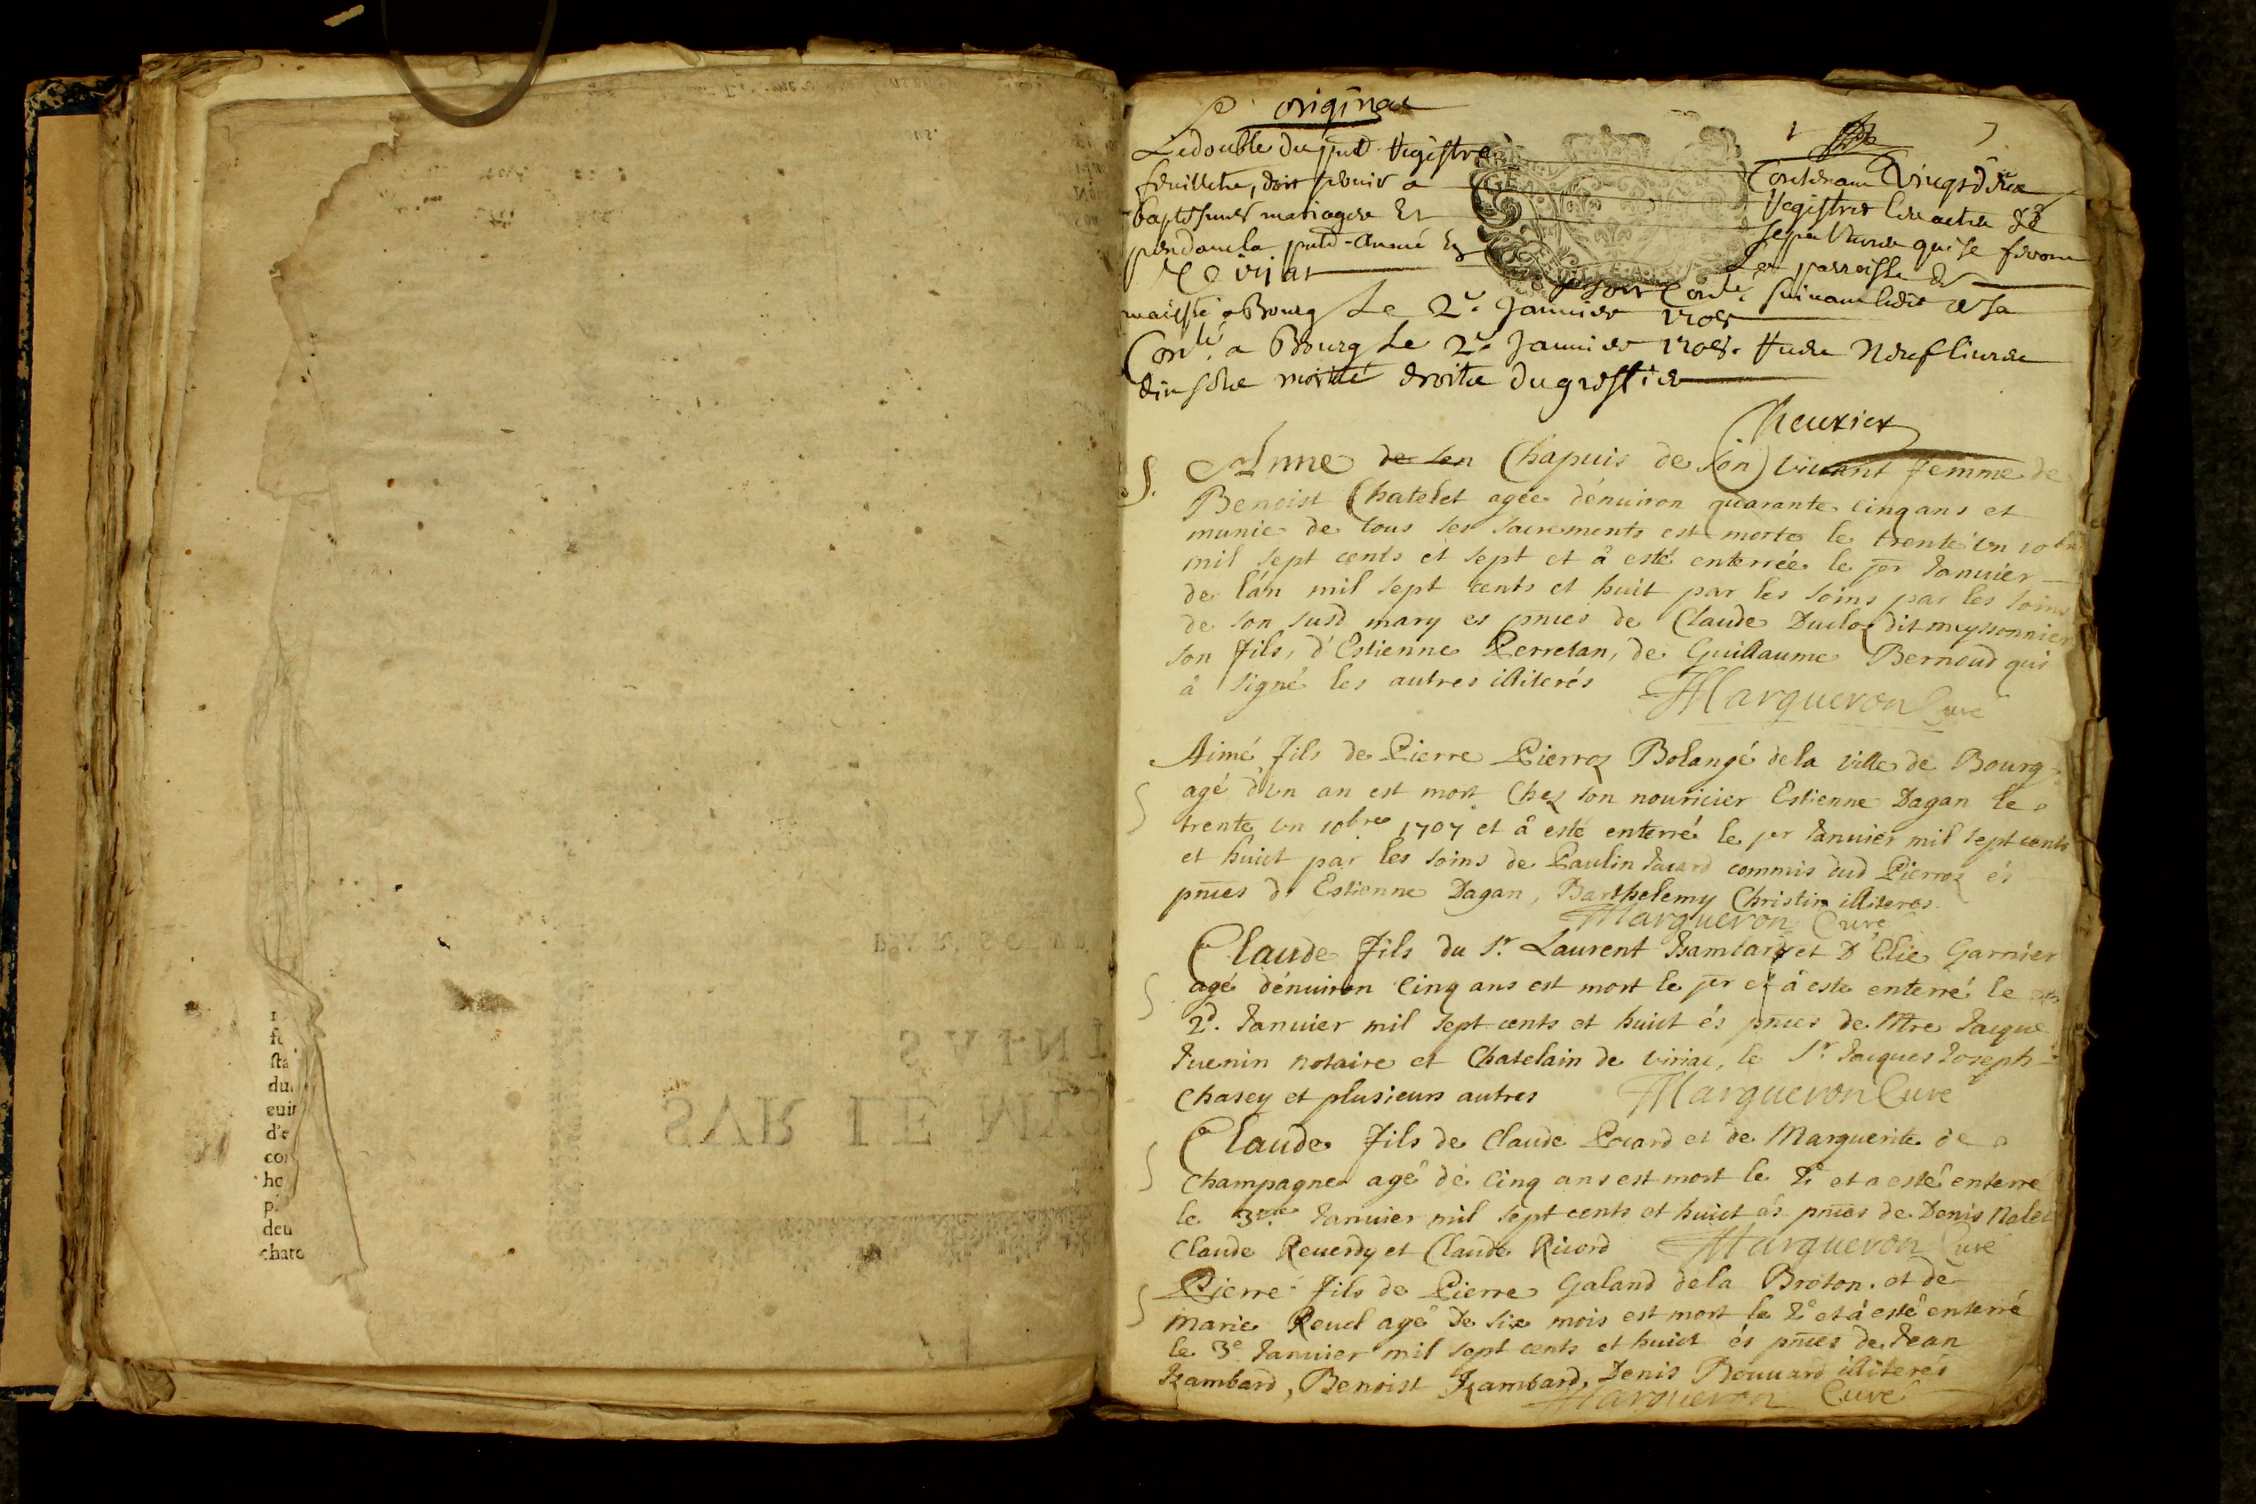 original
Le double du pnt Registre Contenant Vingt deux
feuillets, doit servir a Registrer les actes de
baptesmes mariages Et sepultures qui se feront
pendant la pnte Année En La parroisse de
Viriat
suivant ledit de sa
majesté a Bourg Le 2e Janvier 1708
a Bourg Le 2e Janvier 1708. neuf livres
dix sols moitié droits du greffier
Cheurier
S. Anne de son Chapuis de son viuant femme de
Benoist Chatelet agée dénuiron quarante cinq ans et
munie de tous ses sacrements est morte le trente un 10bre
mil sept cents et sept et â esté enterrée le jer Januier
de l'an mil sept cents et huit par les soins par les soins
de son susd mary es pnces de Claude Duclos dit meyssonnier
son fils, d'Estienne Perretan, de Guillaume Bernoud qui
â signé les autres illiterés Marqueron Curé
S Aimé fils de Pierre Pierroz Bolangé de la ville de Bourg
agé d'un an est mort Chez son nouricier Estienne Dagan le
trente un 10bre 1707 et â esté enterré le jer Januier mil sept cents
et huict par les soins de Paulin commis dud Pierroz és
pnces d'Estienne Dagan, Barthelemy Christin illiteres
Marqueron Curé
S Claude fils du Sr Laurent et D Elie Garnier
agé dénuiron cinq ans est mort le jer et â esté enterré le
2d. Januier mil sept cents et huict és pnces de Mre Jacque
Juenin notaire et Chatelain de Viriac, le Sr Jacques Joseph
Chasey et plusieurs autres Marqueron Curé
S Claude fils de Claude Pocard et de Marguerite de
Champagne agé de cinq ans est mort le 2e et a esté enterré
le 3me Januier mil sept cents et huict és pnces de Denis
Claude Reuerdy et Claude Ricord Marqueron Curé
S Pierre fils de Pierre Galand de la Broton. et de
Marie Reuel agé De six mois est mort le 2e et â esté enterré
le 3e Januier mil sept cents et huict és pnces de Jean
Rambard, Benoist Rambard, Denis Bouuard illiterés
Marqueron Curé
SVR LE
du
deu